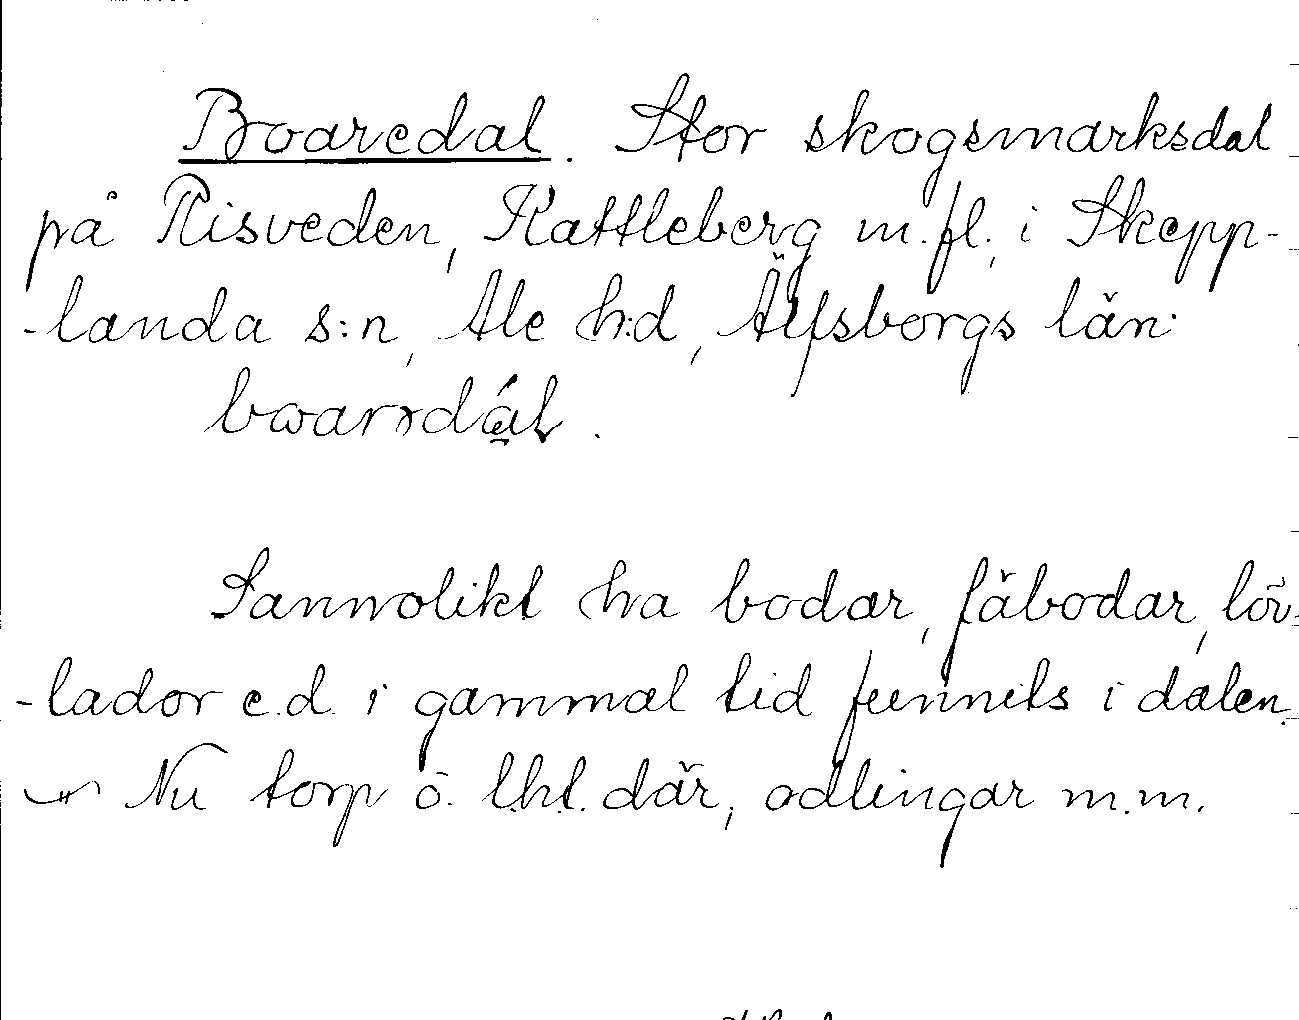 Boaredal. Stor skogsmarksdal
på Risveden, Kattleberg m.fl. i Skepp-
-landa s:n, Ale h:d, Älfsborgs län:
Sannolikt ha bodar, fäbodar, löv-
-lador e.d. i gammal tid funnits i dalen.
Nu torp o. lht. där, odlingar m.m.